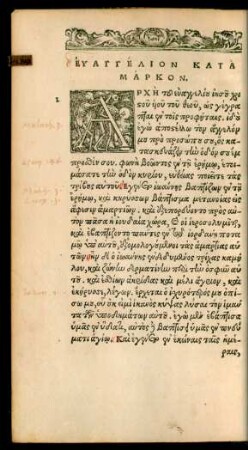 ΕΥΑΓΓΕΛΙΟΝ ΚΑΤΑ
ΜΑΡΚΟΝ.
ΡΧΗ τοῦ εὐαγγελίου ἰησοῦ χρι
στοῦ υἱοῦ τοῦ θεοῦ, ὡς γέγρα
πται ἐν τοῖς προφήταις. ἰδοὺ
ἐγὼ ἀποστέλλω τὸν ἄγγελόν
μου πρὸ προσώπου σου, ὃς κα
τασκευάσει τὴν ὁδόν σου ἔμ
προσθέν σου. φωνὴ βοῶντος ἐν τῇ ἐρήμῳ, ἑτοι
μάσατε τὴν ὁδὸν κυρίου, εὐθείας ποιεῖτε τὰς
τρίβους αὐτοῦ. Ἐγένετο ἰωάννης βαπτίζων ἐν τῇ
ἐρήμῳ, καὶ κηρύσσων βάπτισμα μετανοίας εἰς
ἄφεσιν ἁμαρτιῶν. καὶ ἐξεπορεύετο πρὸς αὐ
τὸν πᾶσα ἡ ἰουδαία χώρα, καὶ οἱ ἱεροσολυμῖται,
καὶ ἐβαπτίζοντο πάντες ἐν τῷ ἰορδάνῃ ποτα
μῷ ὑπ' αὐτοῦ, ἐξομολογούμενοι τὰς ἁμαρτίας αὐ
τῶν. ἦν δὲ ὁ ἰωάννης ἐνδεδυμένος τρίχας καμή
λου, καὶ ζώνην δερματίνην περὶ τὴν ὀσφῦν αὐτοῦ
, καὶ ἐσθίων ἀκρίδας καὶ μέλι ἄγριον, καὶ
ἐκήρυσσε, λέγων. ἔρχεται ὁ ἰσχυρότερός μου ὀπί
σω μου, οὗ οὐκ εἰμὶ ἱκανὸς κύψας λῦσαι τὸν ἱμάντα
τῶν ὑποδημάτων αὐτοῦ. ἐγὼ μὲν ἐβάπτισα
ὑμᾶς ἐν ὕδατι, αὐτὸς δὲ βαπτίσει ὑμᾶς ἐν πνεύ
ματι ἁγίῳ. Καὶ ἐγένετο ἐν ἐκείναις ταῖς ἡμέ
ραις,